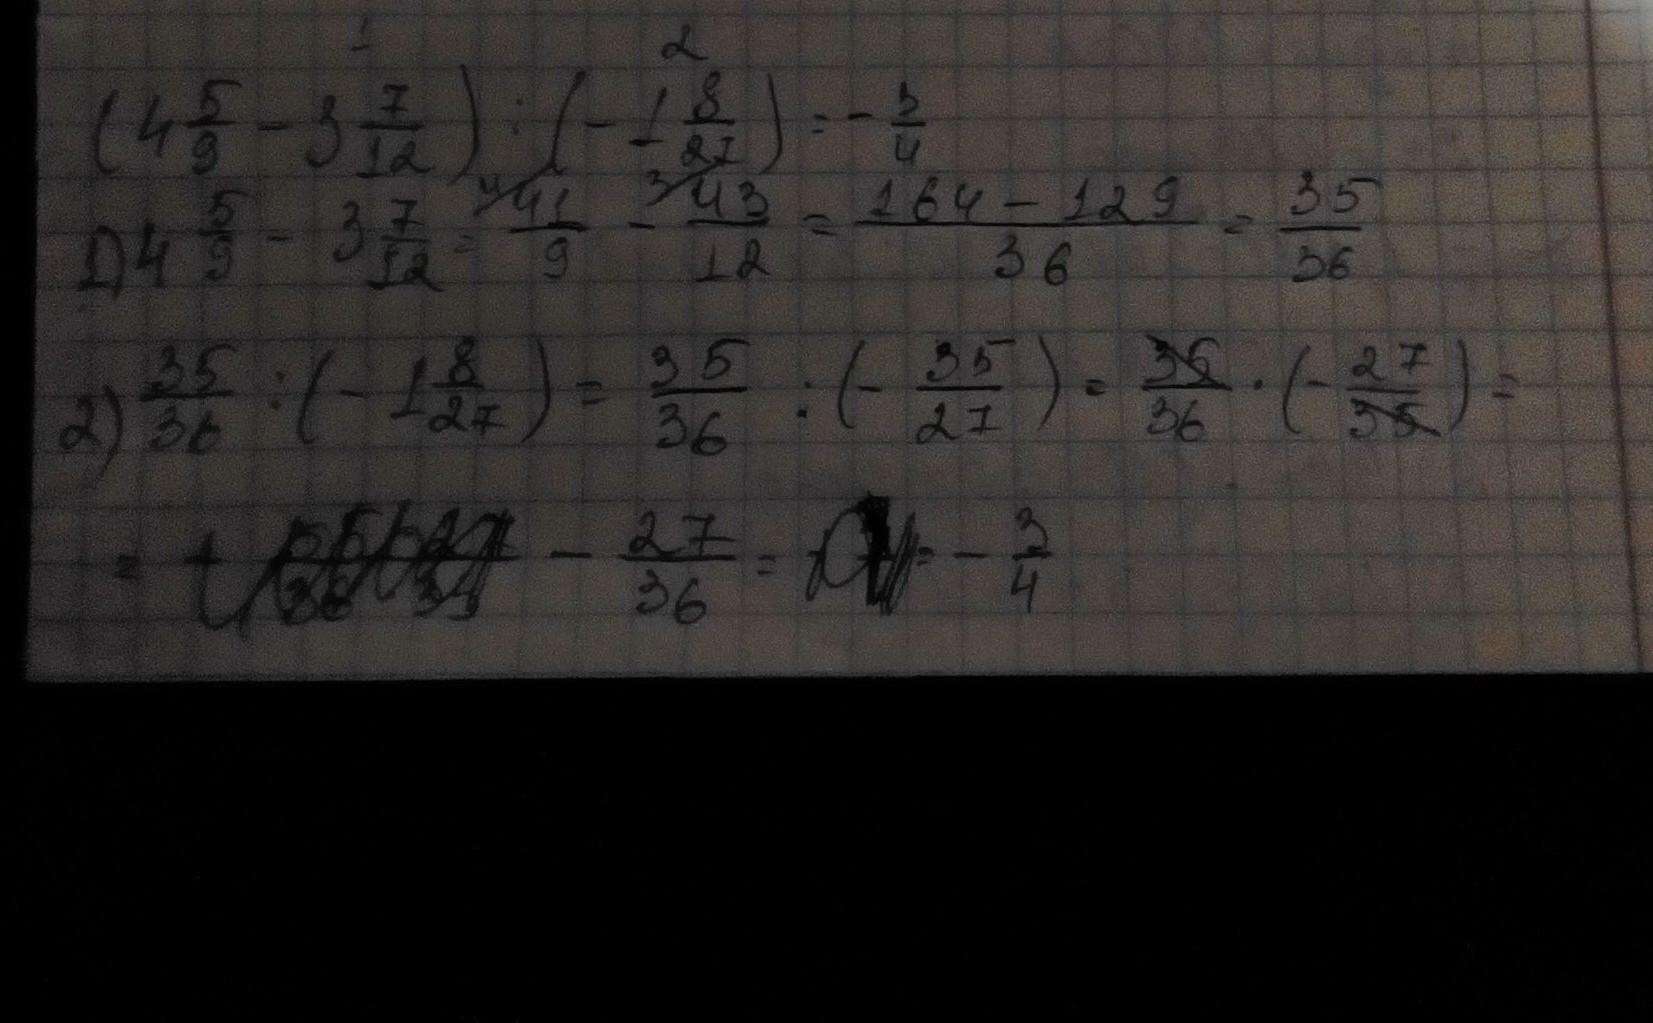 1 2
(4 5/9 - 3 7/12) : (- 1 8/27) = - 3/4
1) 4 5/9 - 3 7/12 = 4/ 41/9 - 3/ 43/12 = 164 - 129/36 = 35/36
2) 35/36 : (- 1 8/27) = 35/36 : (- 35/27) = 35/36 · (- 27/35) =
= - 27/36 = = - 3/4